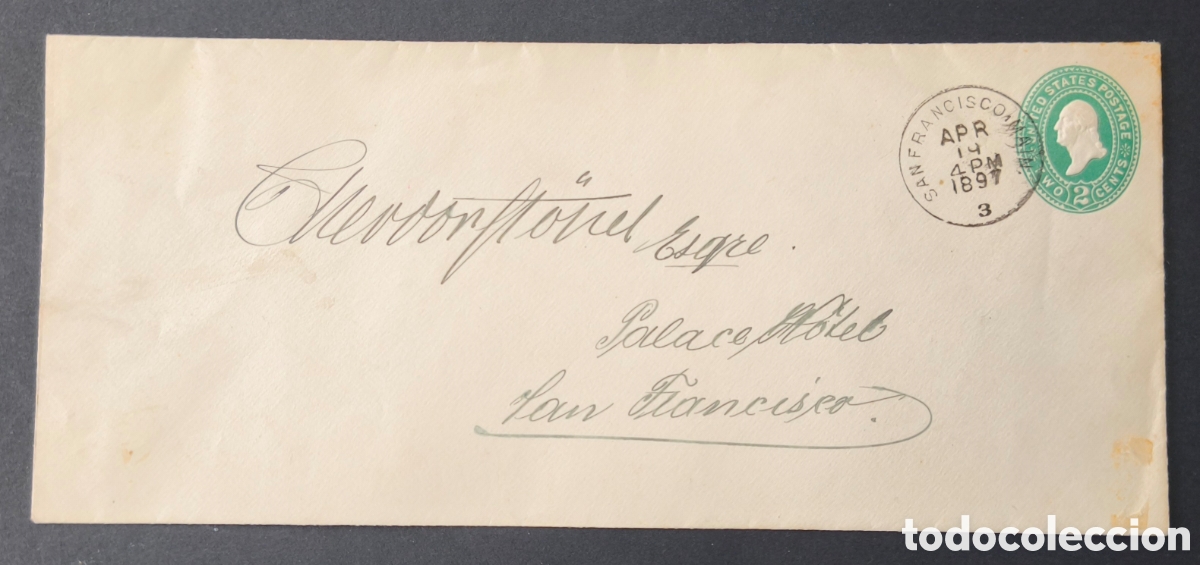 UNITED STATES POSTAGE
TWO 2 CENTS
SAN FRANCISCO
APR
14
4 PM
1897
3
Esqre.
Palace Hôtel
San Francisco.
todocoleccion